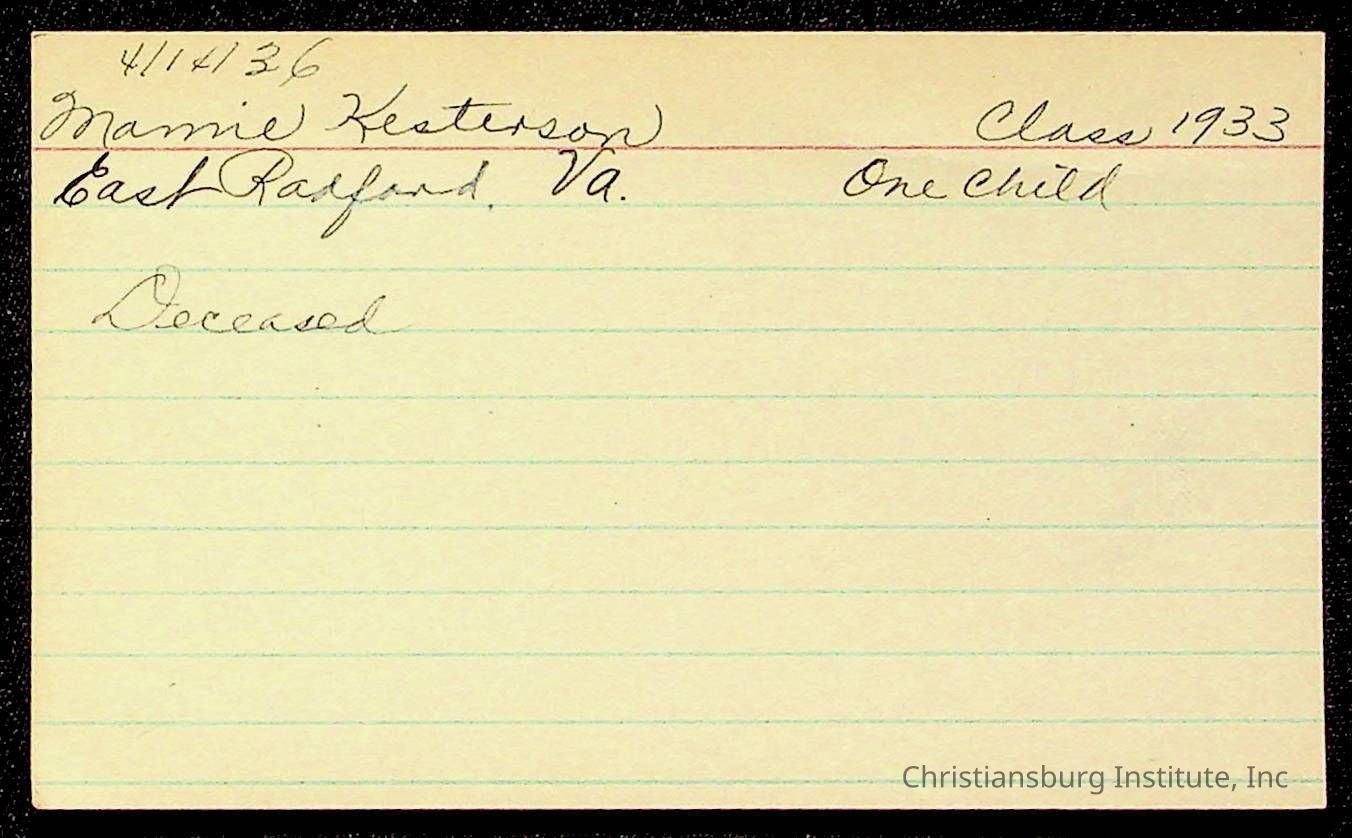 4/14/36
Mamie Kesterson Class 1933
East Radford, Va. One Child
Deceased
Christiansburg Institute, Inc